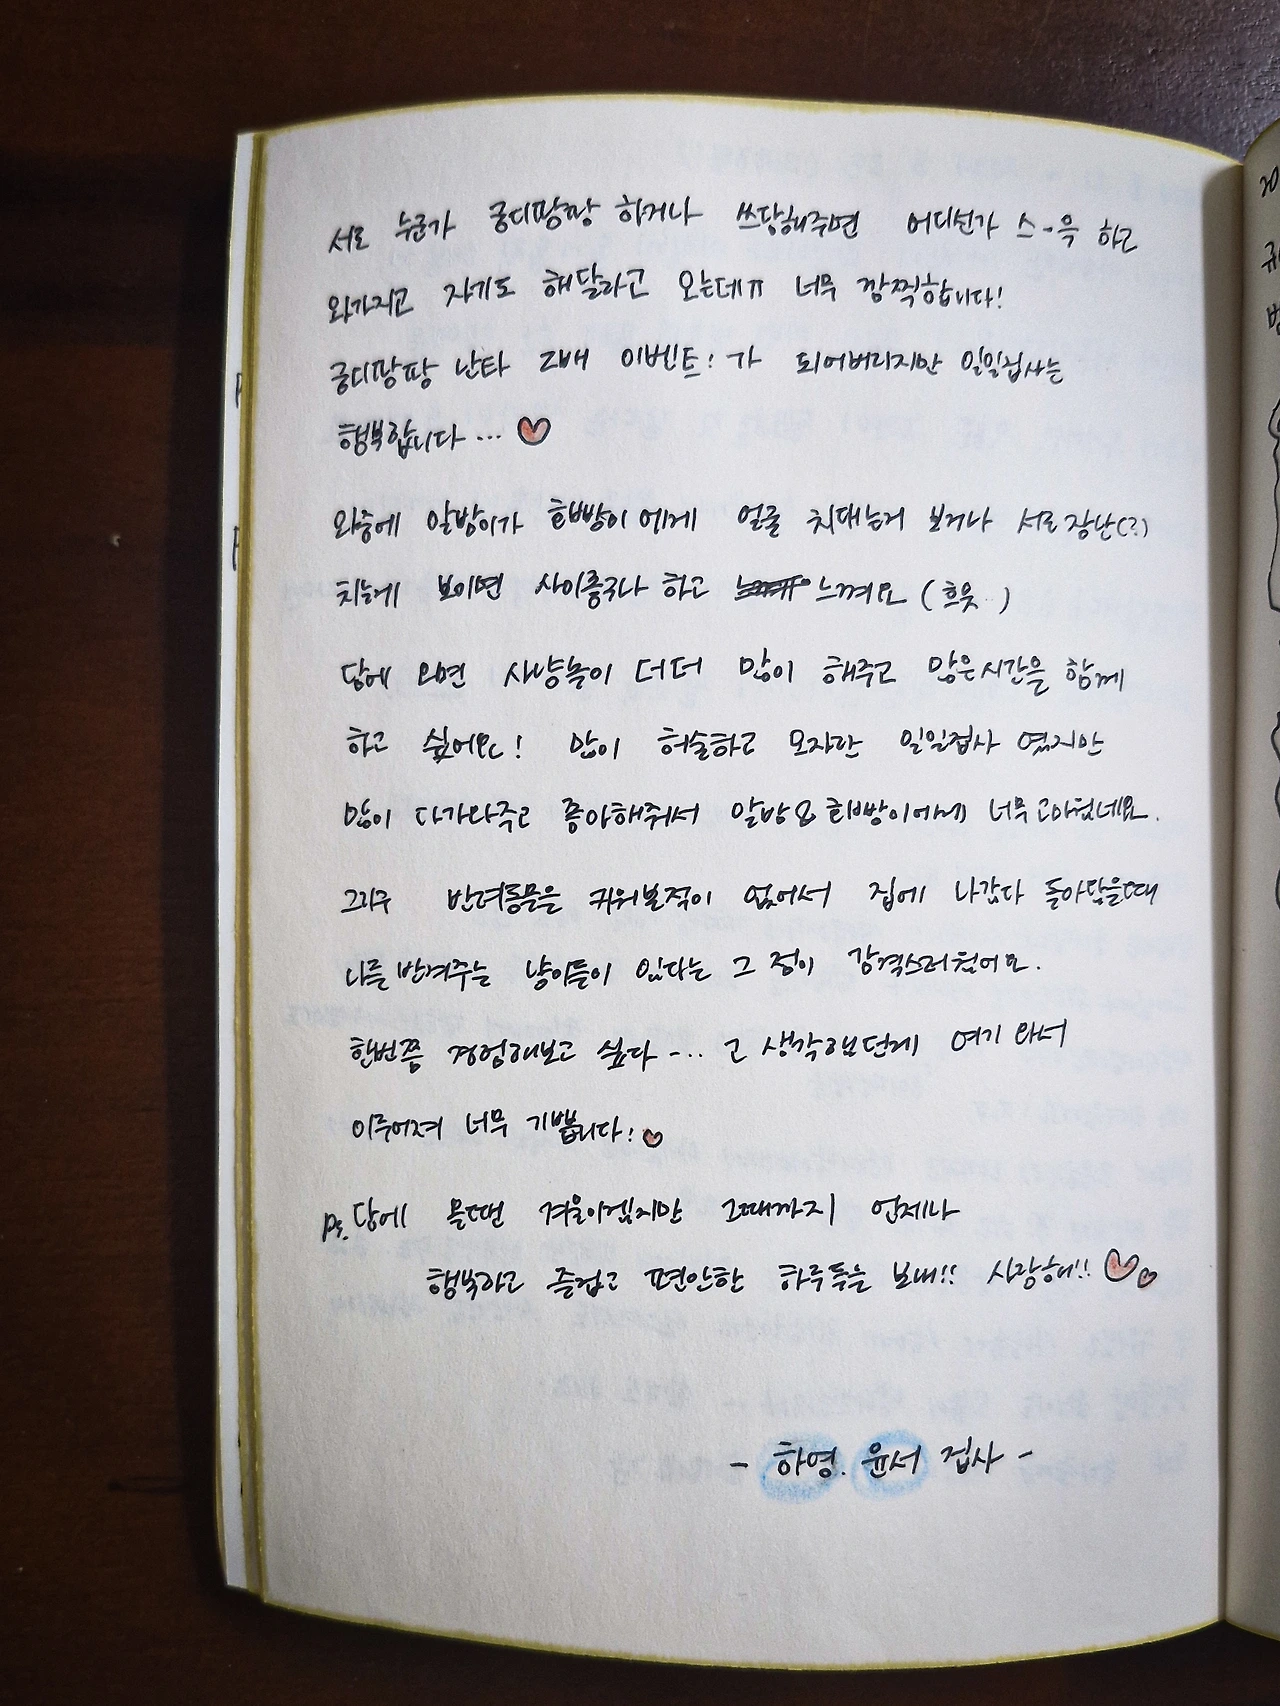 서로 누군가 궁디팡팡 하거나 쓰담해주면 어디선가 스-윽 하고
와가지고 자기도 해달라고 오는데ㅠ 너무 깜찍합니다!
궁디팡팡 난타 2배 이벤트!가 되어버리지만 일일집사는
행복합니다...
와중에 알밤이가 희빵이에게 얼굴 치대는거 보거나 서로 장난(?)
치는게 보이면 사이좋구나 하고 느껴요 (흐읏)
담에 오면 사냥놀이 더더 많이 해주고 많은시간을 함께
하고 싶어요! 많이 허술하고 모자란 일일집사 였지만
많이 다가와주고 좋아해줘서 알밤&희빵이에게 너무 고마웠네요.
그리구 반려동물을 키워본적이 없어서 집에 나갔다 돌아왔을때
나를 반겨주는 냥이들이 있다는 그 점이 감격스러웠어요.
한번쯤 경험해보고 싶다-... 고 생각했던게 여기 와서
이루어져 너무 기쁩니다!
ps. 담에 올때면 겨울이겠지만 그때까지 언제나
행복하고 즐겁고 편안한 하루들을 보내!! 사랑해!!
- 하영. 윤서 집사 -